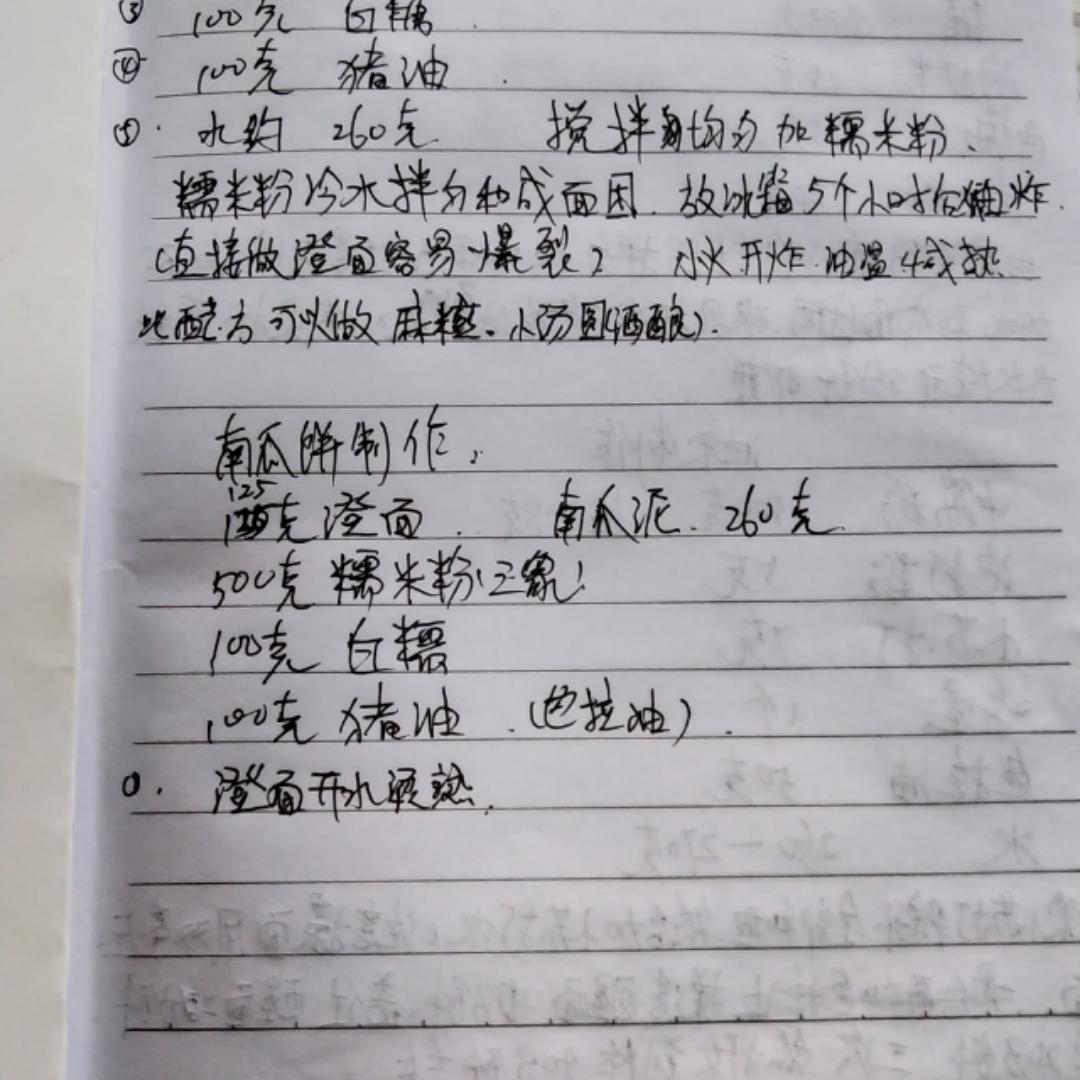 ③ 100克 白糖.
④ 100克 猪油.
⑤. 水约 260克 搅拌均匀加糯米粉、
糯米粉冷水拌匀和成面团. 放冰箱5个小时后油炸.
(直接做澄面容易爆裂) 小火开炸.油温4成热
此配方可以做麻糍。小汤圆(酒酿).
南瓜饼制作,
125克澄面. 南瓜泥. 260克.
500克糯米粉(三象)
100克 白糖
100克 猪油.(色拉油).
0. 澄面开水烫熟.